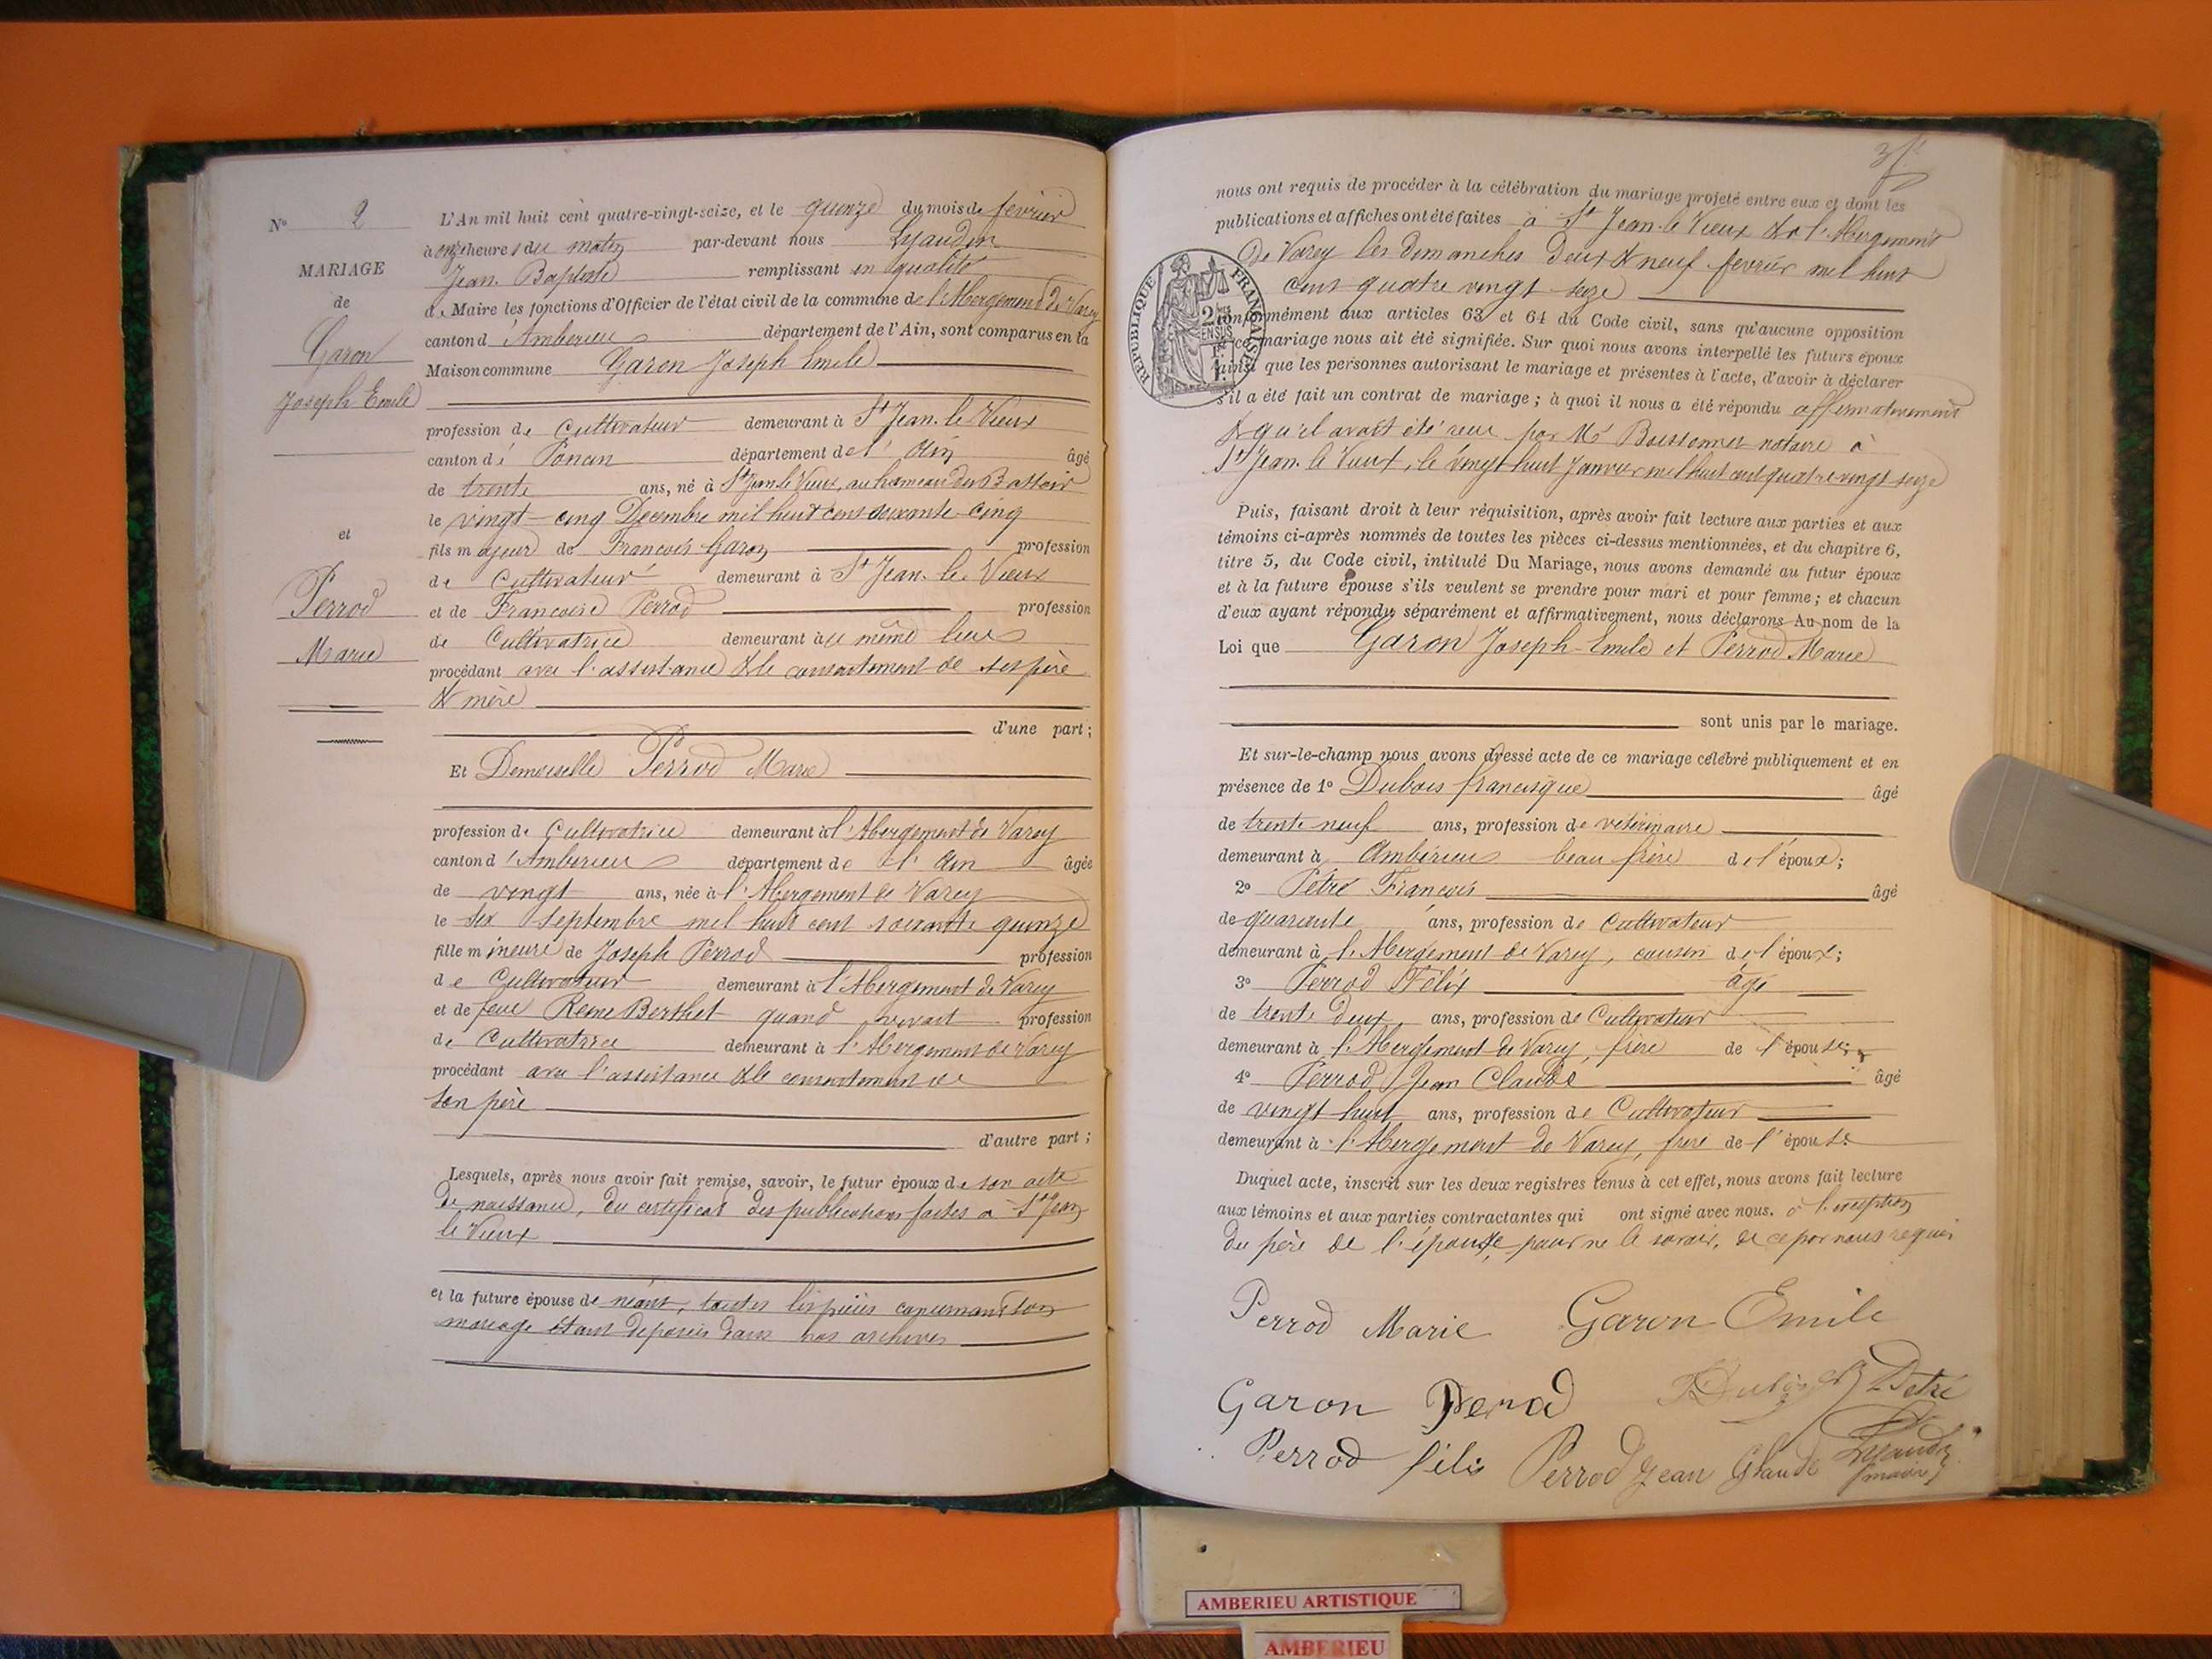 N° 2
MARIAGE
de
Garon
Joseph Emile
et
Perrod
Marie
L'An mil huit cent quatre-vingt-seize, et le quinze du mois de février
à onze heures du matin par-devant nous
Jean-Baptiste remplissant en qualité
de Maire les fonctions d'Officier de l'état civil de la commune de l'Abergement de Varey
canton d'Amberieu département de l'Ain, sont comparus en la
Maison commune Garon Joseph Emile
profession de Cultivateur demeurant à St Jean-le-Vieux
canton de Poncin département de l'Ain âgé
de trente ans, né à St Jean le Vieux, au hameau du Battoir
le vingt-cinq Décembre mil huit cent soixante-cinq
fils majeur de François Garon profession
de Cultivateur demeurant à St Jean-le-Vieux
et de Françoise Perrod profession
de Cultivatrice demeurant au même lieu
procédant avec l'assistance & le consentement de ses père
& mère
d'une part;
Et Demoiselle Perrod Marie
profession de Cultivatrice demeurant à l'Abergement de Varey
canton d'Amberieu département de l'Ain âgée
de vingt ans, née à l'Abergement de Varey
le six Septembre mil huit cent soixante quinze
fille mineure de Joseph Perrod profession
de Cultivateur demeurant à l'Abergement de Varey
et de feue Reine Berthet quand vivait profession
de Cultivatrice demeurant à l'Abergement de Varey
procédant avec l'assistance & le consentement de
son père
d'autre part;
Lesquels, après nous avoir fait remise, savoir, le futur époux de son acte
de naissance, du certificat des publications faites à St Jean
le Vieux
et la future épouse de néant, toutes les pièces concernant son
mariage étant déposées dans nos archives
nous ont requis de procéder à la célébration du mariage projeté entre eux et dont les
publications et affiches ont été faites à St Jean-le-Vieux & à l'Abergement
de Varey les dimanches deux & neuf février mil huit
cent quatre vingt seize
RÉPUBLIQUE FRANÇAISE
conformément aux articles 63 et 64 du Code civil, sans qu'aucune opposition
à ce mariage nous ait été signifiée. Sur quoi nous avons interpellé les futurs époux
ainsi que les personnes autorisant le mariage et présentes à l'acte, d'avoir à déclarer
s'il a été fait un contrat de mariage; à quoi il nous a été répondu affirmativement
& qu'il avait été reçu par Me notaire à
St Jean-le-Vieux, le vingt-huit Janvier mil huit cent quatre-vingt seize
Puis, faisant droit à leur réquisition, après avoir fait lecture aux parties et aux
témoins ci-après nommés de toutes les pièces ci-dessus mentionnées, et du chapitre 6,
titre 5, du Code civil, intitulé Du Mariage, nous avons demandé au futur époux
et à la future épouse s'ils veulent se prendre pour mari et pour femme; et chacun
d'eux ayant répondu séparément et affirmativement, nous déclarons Au nom de la
Loi que Garon Joseph-Emile et Perrod Marie
sont unis par le mariage.
Et sur-le-champ nous avons dressé acte de ce mariage célébré publiquement et en
présence de 1° Dubois francisque âgé
de trente neuf ans, profession de vétérinaire
demeurant à Ambérieu beau frère de l'époux;
2° Pétré François âgé
de quarante ans, profession de Cultivateur
demeurant à l'Abergement de Varey, cousin de l'époux;
3° Perrod Félix âgé
de trente deux ans, profession de Cultivateur
demeurant à l'Abergement de Varey, frère de l'épouse;
4° Perrod Jean Claude âgé
de vingt huit ans, profession de Cultivateur
demeurant à l'Abergement de Varey, frère de l'épouse
Duquel acte, inscrit sur les deux registres tenus à cet effet, nous avons fait lecture
aux témoins et aux parties contractantes qui ont signé avec nous. à l'exception
du père de l'épouse, pour ne le savoir, de ce par nous requis
Perrod Marie Garon Emile
Garon Perrod Dubois Petré
Perrod félix Perrod Jean Claude
(maire)
AMBERIEU ARTISTIQUE
AMBERIEU